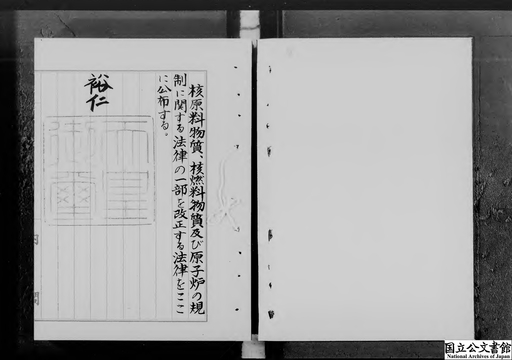 核原料物質、核燃料物質及び原子炉の規
制に関する法律の一部を改正する法律をここ
に公布する。
裕仁
天皇
御璽
国立公文書館
National Archives of Japan